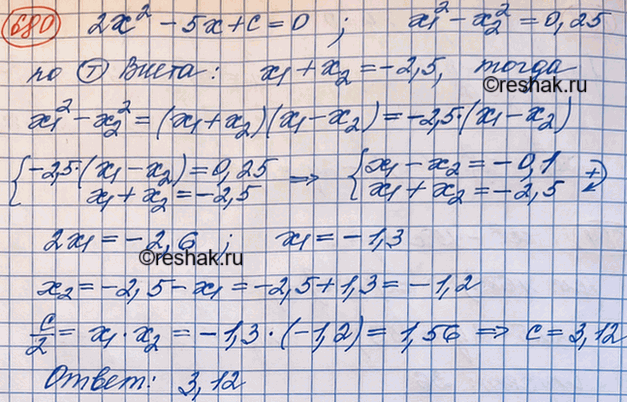 680 2x² - 5x + c = 0 ; x₁² - x₂² = 0,25
по Ⓣ Виета: x₁ + x₂ = -2,5, тогда
©reshak.ru
x₁² - x₂² = (x₁ + x₂)(x₁ - x₂) = -2,5·(x₁ - x₂)
{ -2,5·(x₁ - x₂) = 0,25 ⇒ { x₁ - x₂ = -0,1 +
x₁ + x₂ = -2,5 x₁ + x₂ = -2,5
2x₁ = -2,6 ; x₁ = -1,3
©reshak.ru
x₂ = -2,5 - x₁ = -2,5 + 1,3 = -1,2
c/2 = x₁·x₂ = -1,3·(-1,2) = 1,56 ⇒ c = 3,12
Ответ: 3,12